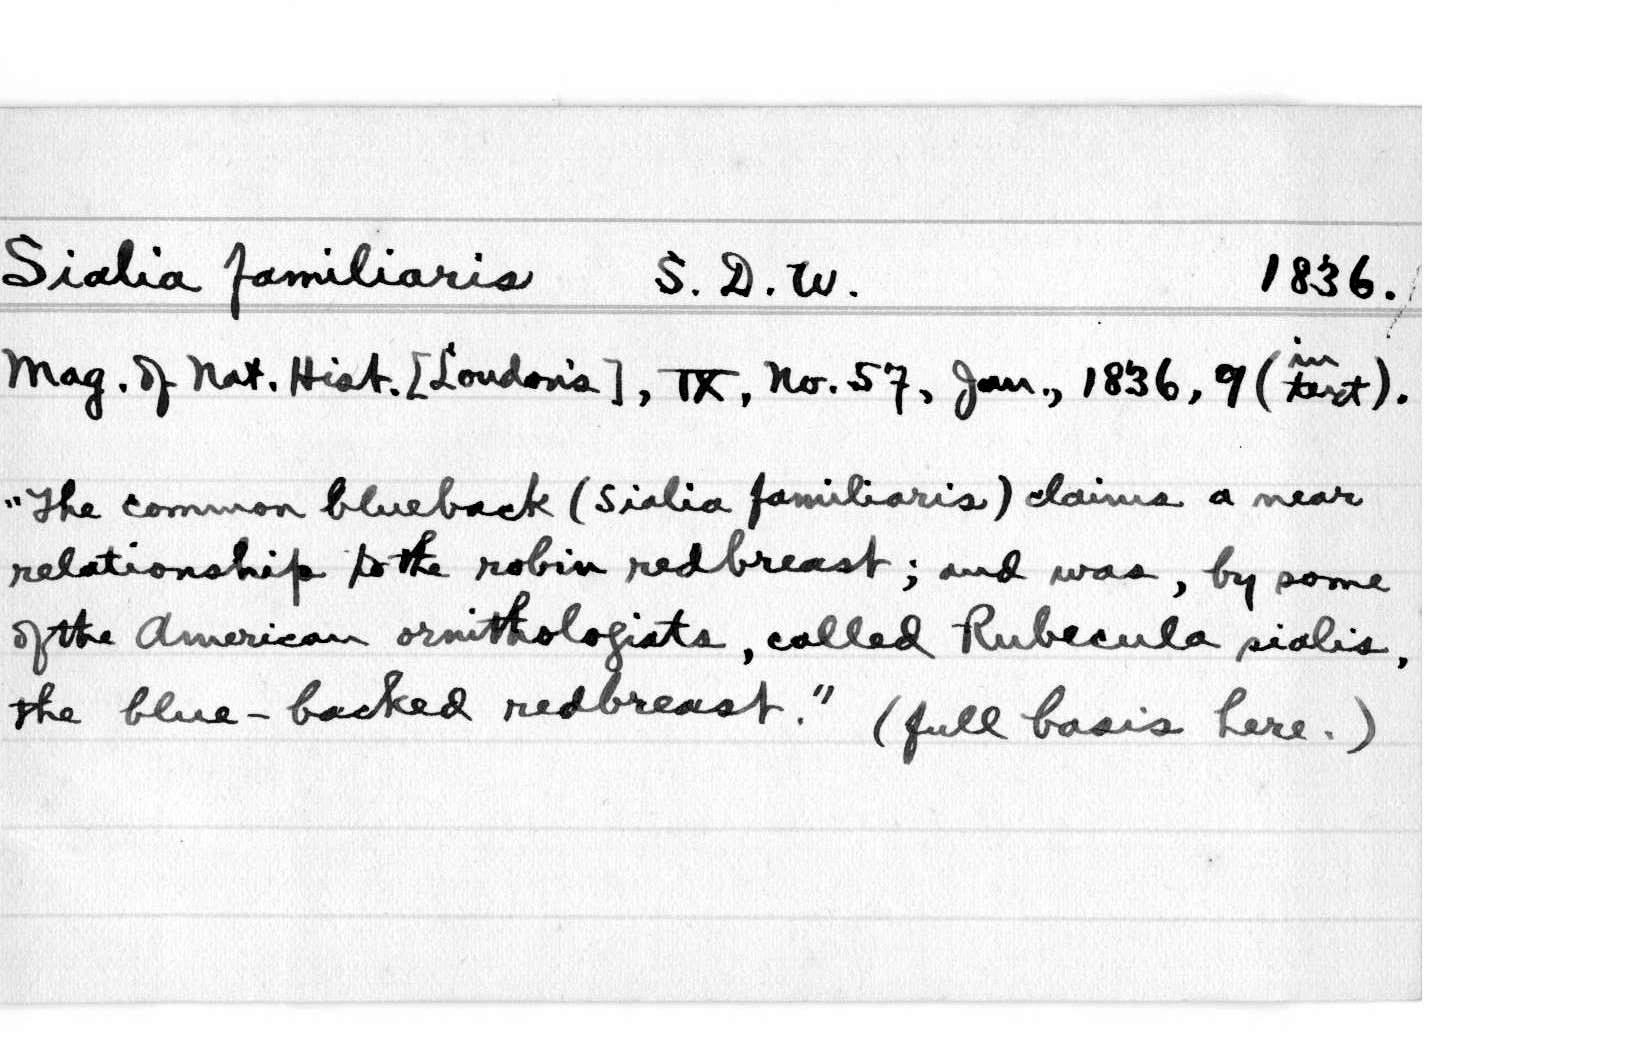 Sialia familiaris S. D. W. 1836.
Mag. of Nat. Hist. [Loudon's], IX, No. 57, Jan., 1836, 9 (in text).
"The common blueback (Sialia familiaris) claims a near
relationship to the robin redbreast; and was, by some
of the American ornithologists, called Rubecula sialis,
the blue-backed redbreast." (full basis here.)